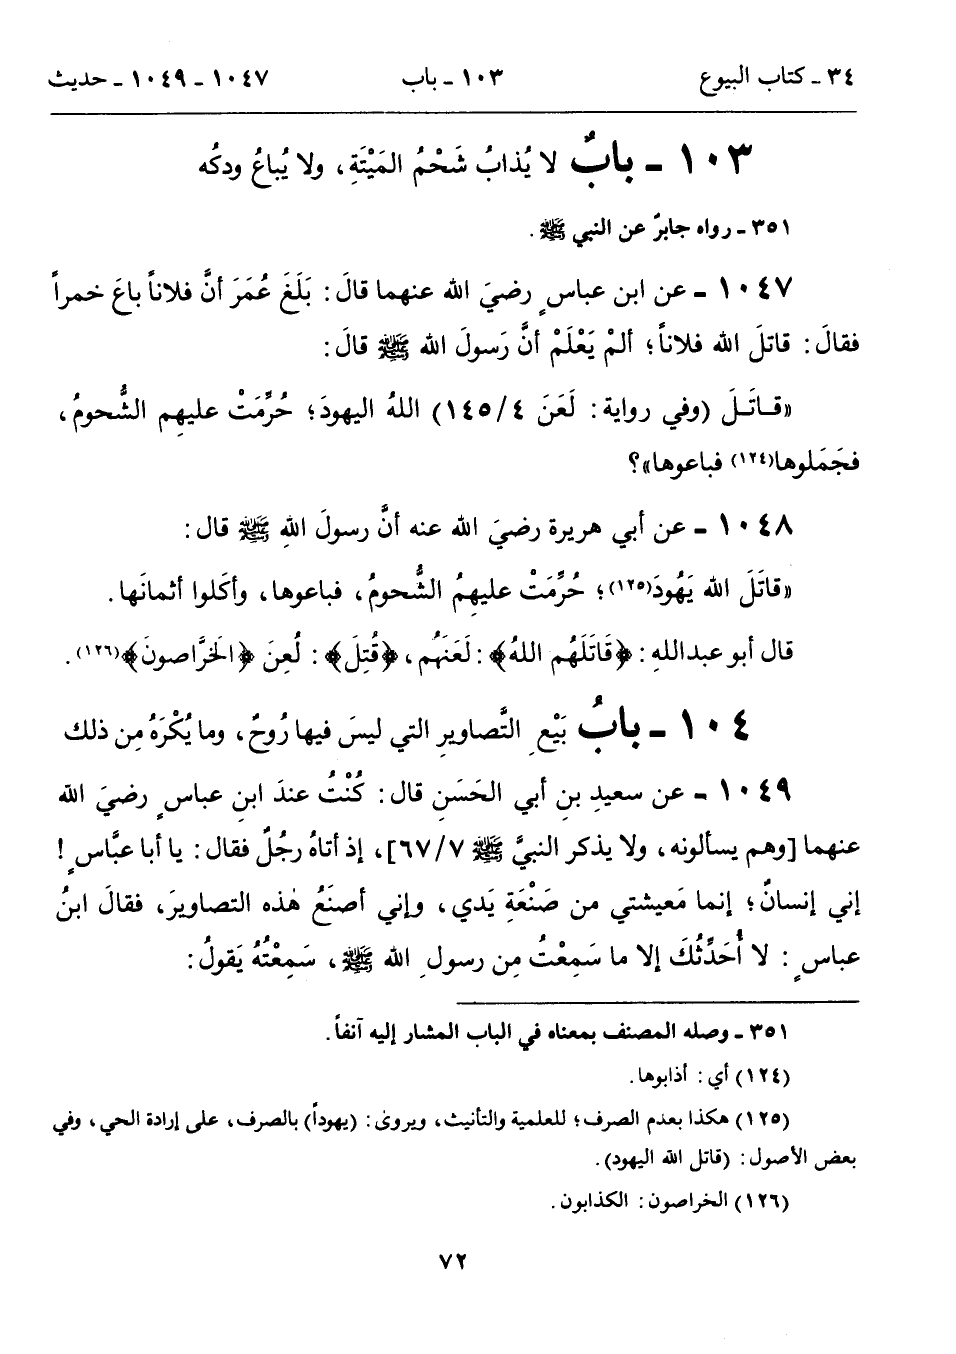 ٣٤ ـ كتاب البيوع ١٠٣ ـ باب ١٠٤٧ ـ ١٠٤٩ ـ حديث
١٠٣ ـ بابٌ لا يُذابُ شَحْمُ المَيْتَةِ، ولا يُباعُ ودكُه
٣٥١ ـ رواه جابرٌ عن النبي ﷺ.
١٠٤٧ ـ عن ابن عباسٍ رضيَ الله عنهما قالَ: بَلَغَ عُمَرَ أنَّ فلاناً باعَ خمراً
فقالَ: قاتلَ الله فلاناً؛ ألمْ يَعْلَمْ أنَّ رَسولَ الله ﷺ قالَ:
«قـاتَـلَ (وفي رواية: لَعَنَ ٤/١٤٥) اللهُ اليهودَ؛ حُرِّمَتْ عليهِم الشُّحومُ،
فجَمَلوها(١٢٤) فباعوها»؟
١٠٤٨ ـ عن أبي هريرة رضيَ الله عنه أنَّ رسولَ اللهِ ﷺ قال:
«قاتَلَ الله يَهُودَ(١٢٥)؛ حُرِّمَتْ عليهِمُ الشُّحومُ، فباعوها، وأكَلوا أثمانَها.
قال أبو عبداللهِ: ﴿قَاتَلَهُم اللهُ﴾: لَعَنَهُم، ﴿قُتِلَ﴾: لُعِنَ ﴿الخَرَّاصونَ﴾(١٢٦).
١٠٤ ـ بابُ بَيْعِ التَّصاويرِ التي ليسَ فيها رُوحٌ، وما يُكْرَهُ مِن ذلك
١٠٤٩ ـ عن سعيدِ بنِ أبي الحَسَنِ قال: كُنْتُ عندَ ابنِ عباسٍ رضيَ الله
عنهما [وهم يسألونه، ولا يذكر النبيَّ ﷺ ٧/٦٧]، إذ أتاهُ رجُلٌ فقال: يا أبا عبَّاسٍ!
إني إنسانٌ؛ إنما مَعيشتي من صَنْعَةِ يَدي، وإني أصنَعُ هٰذه التصاويرَ، فقالَ ابنُ
عباسٍ: لا أُحَدِّثُكَ إلا ما سَمِعْتُ مِن رسولِ الله ﷺ، سَمِعْتُهُ يَقولُ:
٣٥١ ـ وصله المصنف بمعناه في الباب المشار إليه آنفاً.
(١٢٤) أي: أذابوها.
(١٢٥) هكذا بعدم الصرف؛ للعلمية والتأنيث، ويروىٰ: (يهوداً) بالصرف، على إرادة الحي، وفي
بعض الأصول: (قاتل الله اليهود).
(١٢٦) الخراصون: الكذابون.
٧٢